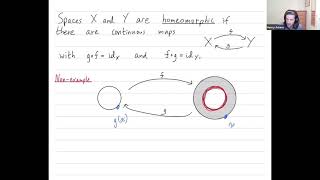 Spaces X and Y are homeomorphic if
there are continuous maps
X f Y
g
with g∘f = idx, and f∘g = idy.
Non-example
f
g
g(x)